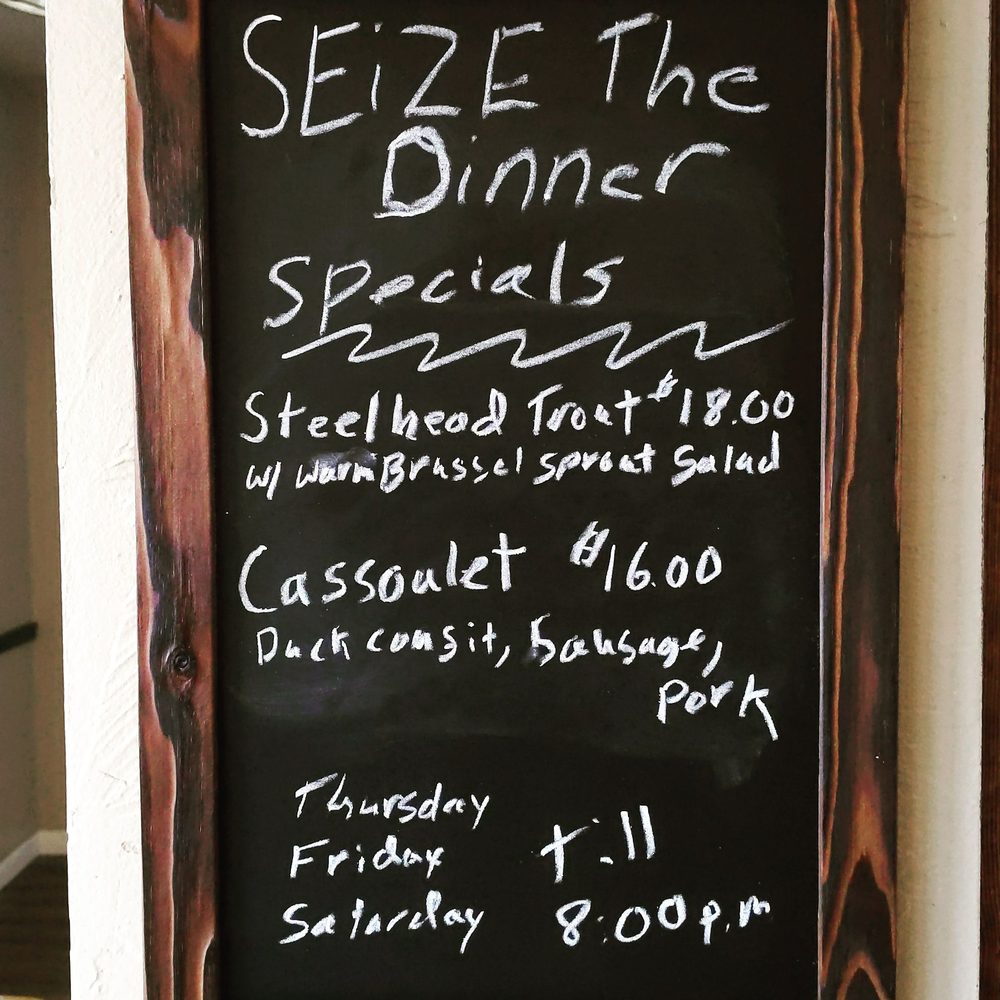 SEiZE The
Dinner
Specials
Steelhead Trout $18.00
w/ warm Brussel sprout Salad
Cassoulet $16.00
Duck consit, Sausage,
pork
Thursday
Friday till
Saturday 8:00 p.m